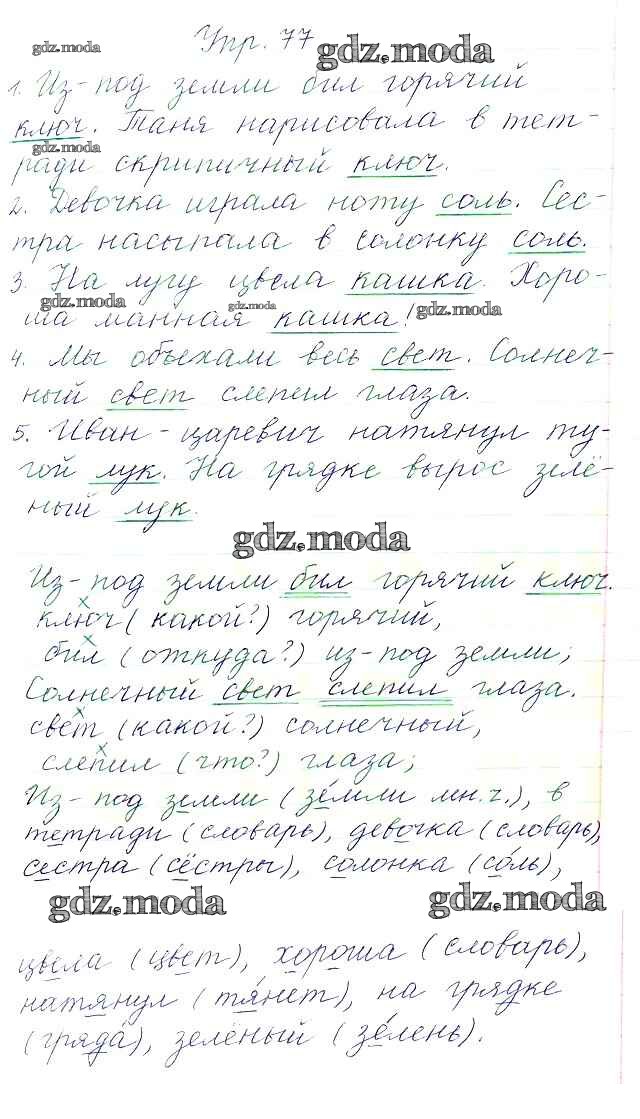 Упр. 77
gdz.moda gdz.moda
1. Из-под земли бил горячий
ключ. Таня нарисовала в тет-
gdz.moda
ради скрипичный ключ.
2. Девочка играла ноту соль. Сес-
тра насыпала в солонку соль.
3. На лугу цвела кашка. Хоро-
gdz.moda gdz.moda gdz.moda
ша манная кашка!
4. Мы объехали весь свет. Солнеч-
ный свет слепил глаза.
5. Иван-царевич натянул ту-
гой лук. На грядке вырос зелё-
ный лук.
gdz.moda
Из-под земли бил горячий ключ.
ключ (какой?) горячий,
бил (откуда?) из-под земли;
Солнечный свет слепил глаза.
свет (какой?) солнечный,
слепил (что?) глаза;
Из-под земли (зе́мли мн.ч.), в
тетради (словарь), девочка (словарь),
сестра (сёстры), солонка (со́ль),
gdz.moda gdz.moda
цвела (цвет), хороша (словарь),
натянул (тя́нет), на грядке
(гряда́), зелёный (зе́лень).